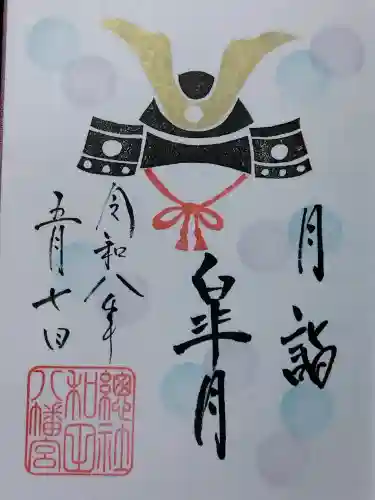 月詣
皐月
令和八年
五月七日
總社
和田
八幡宮